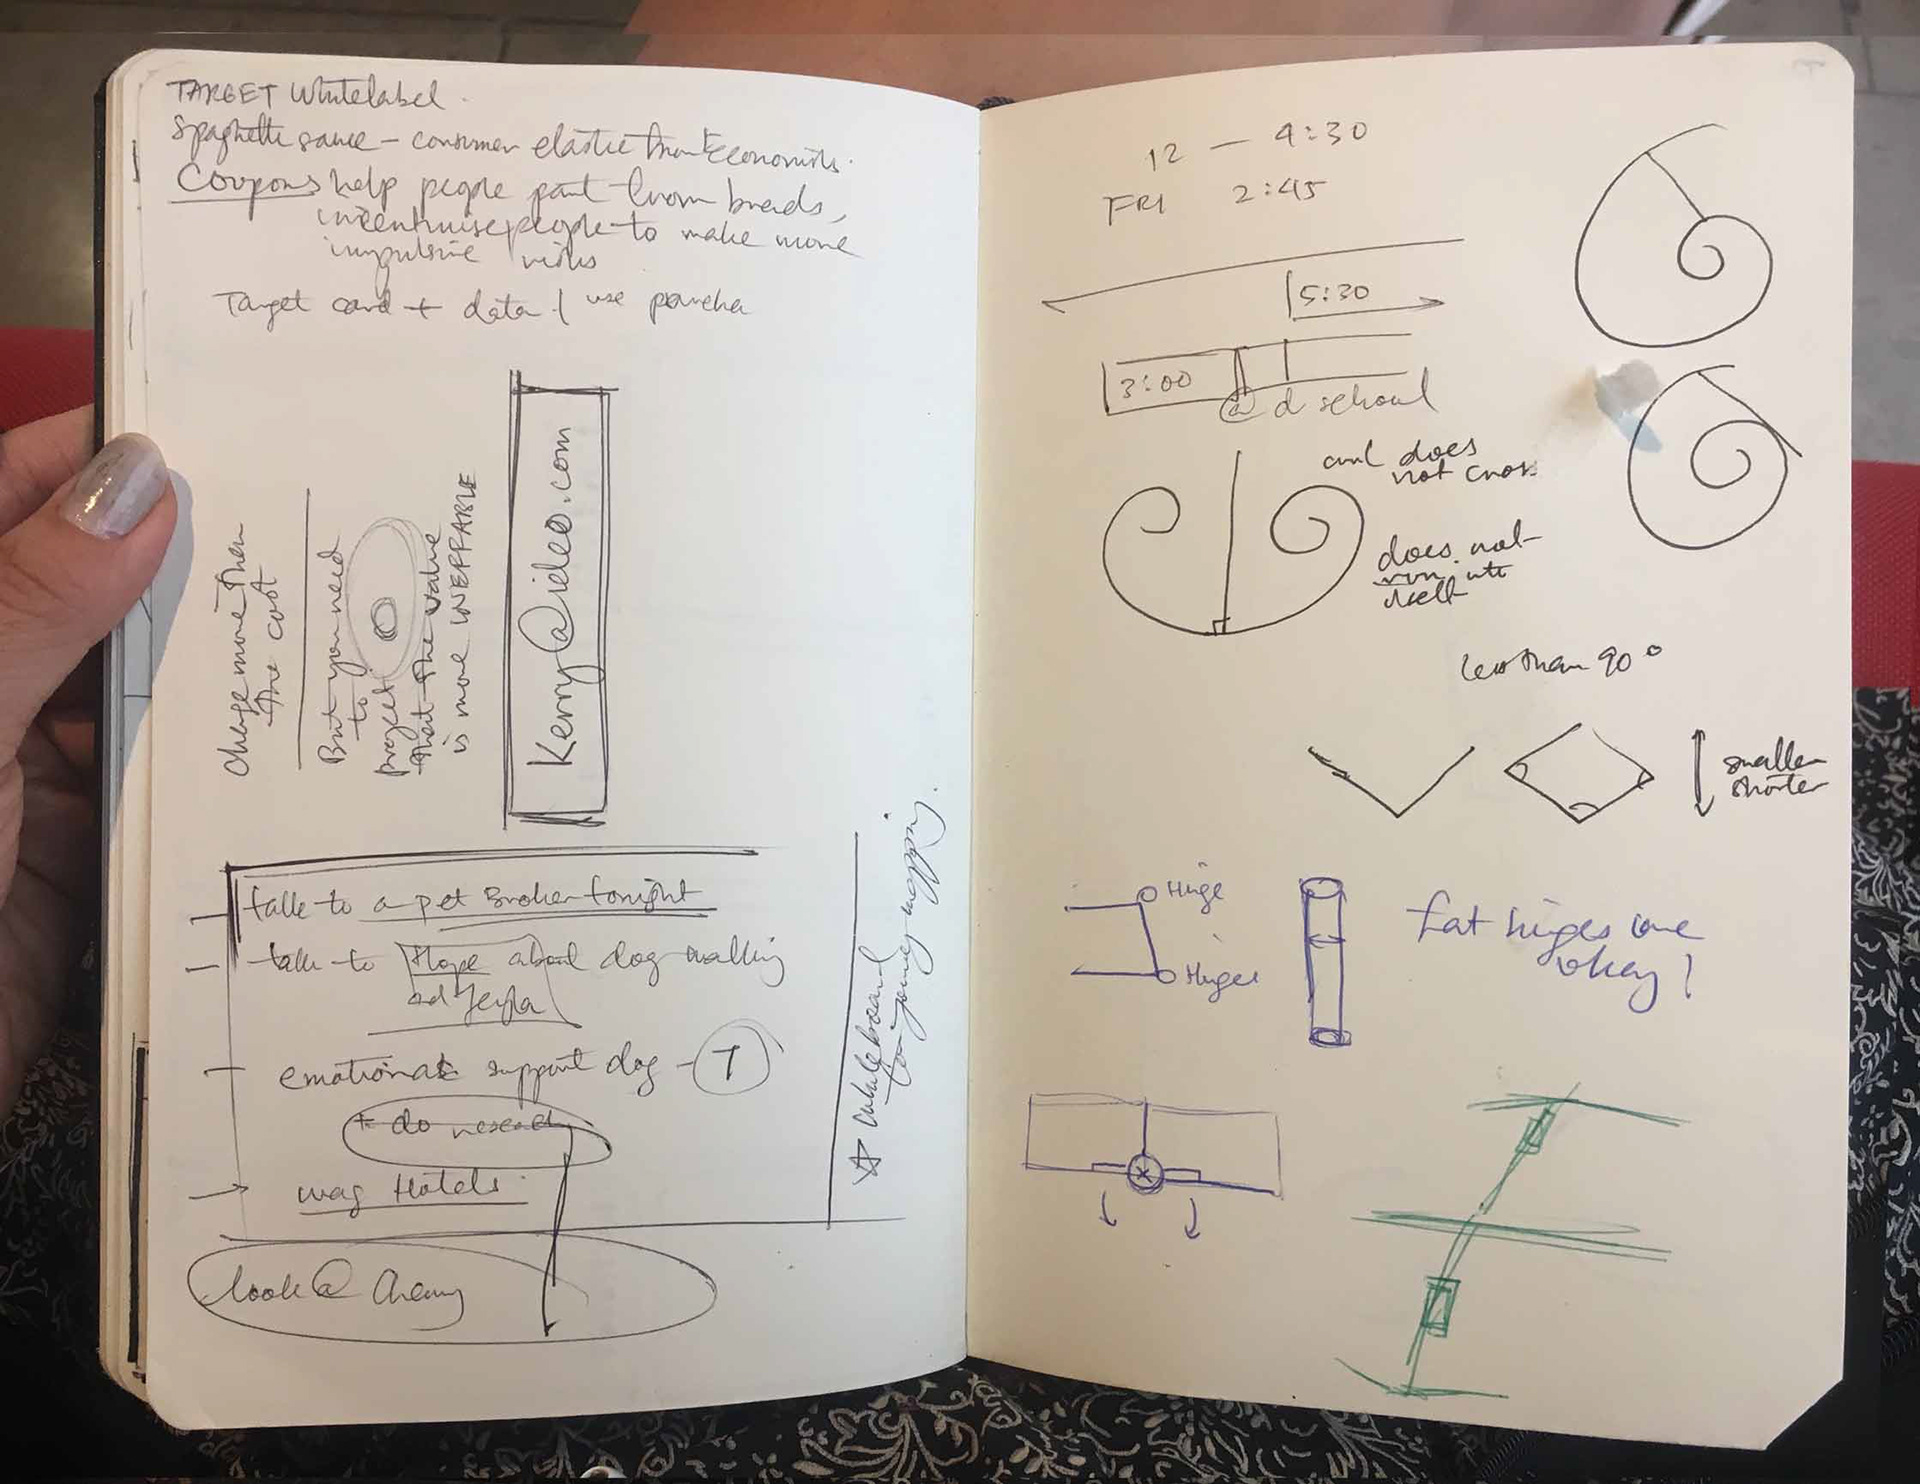 TARGET Whitelabel.
Spaghetti sauce - consumer elastic
Coupons help people part from brands,
incentivise people to make more
impulsive
Target card + data / use
Charge more then
the cost
But you need
to
project
that the value
is more INEFFABLE
Kerry@ideo.com
talk to a pet Broker tonight
talk to Hope about dog walking
emotional support dog - T
+ do research
wag Hotels.
look @
☆ whiteboard
to journey mapping.
12 — 4:30
FRI 2:45
5:30
3:00
@ d school
curl does
not cross
does not
run into
itself
less than 90°
smaller
shorter
Hinge
Hinges
fat hinges are
okay!